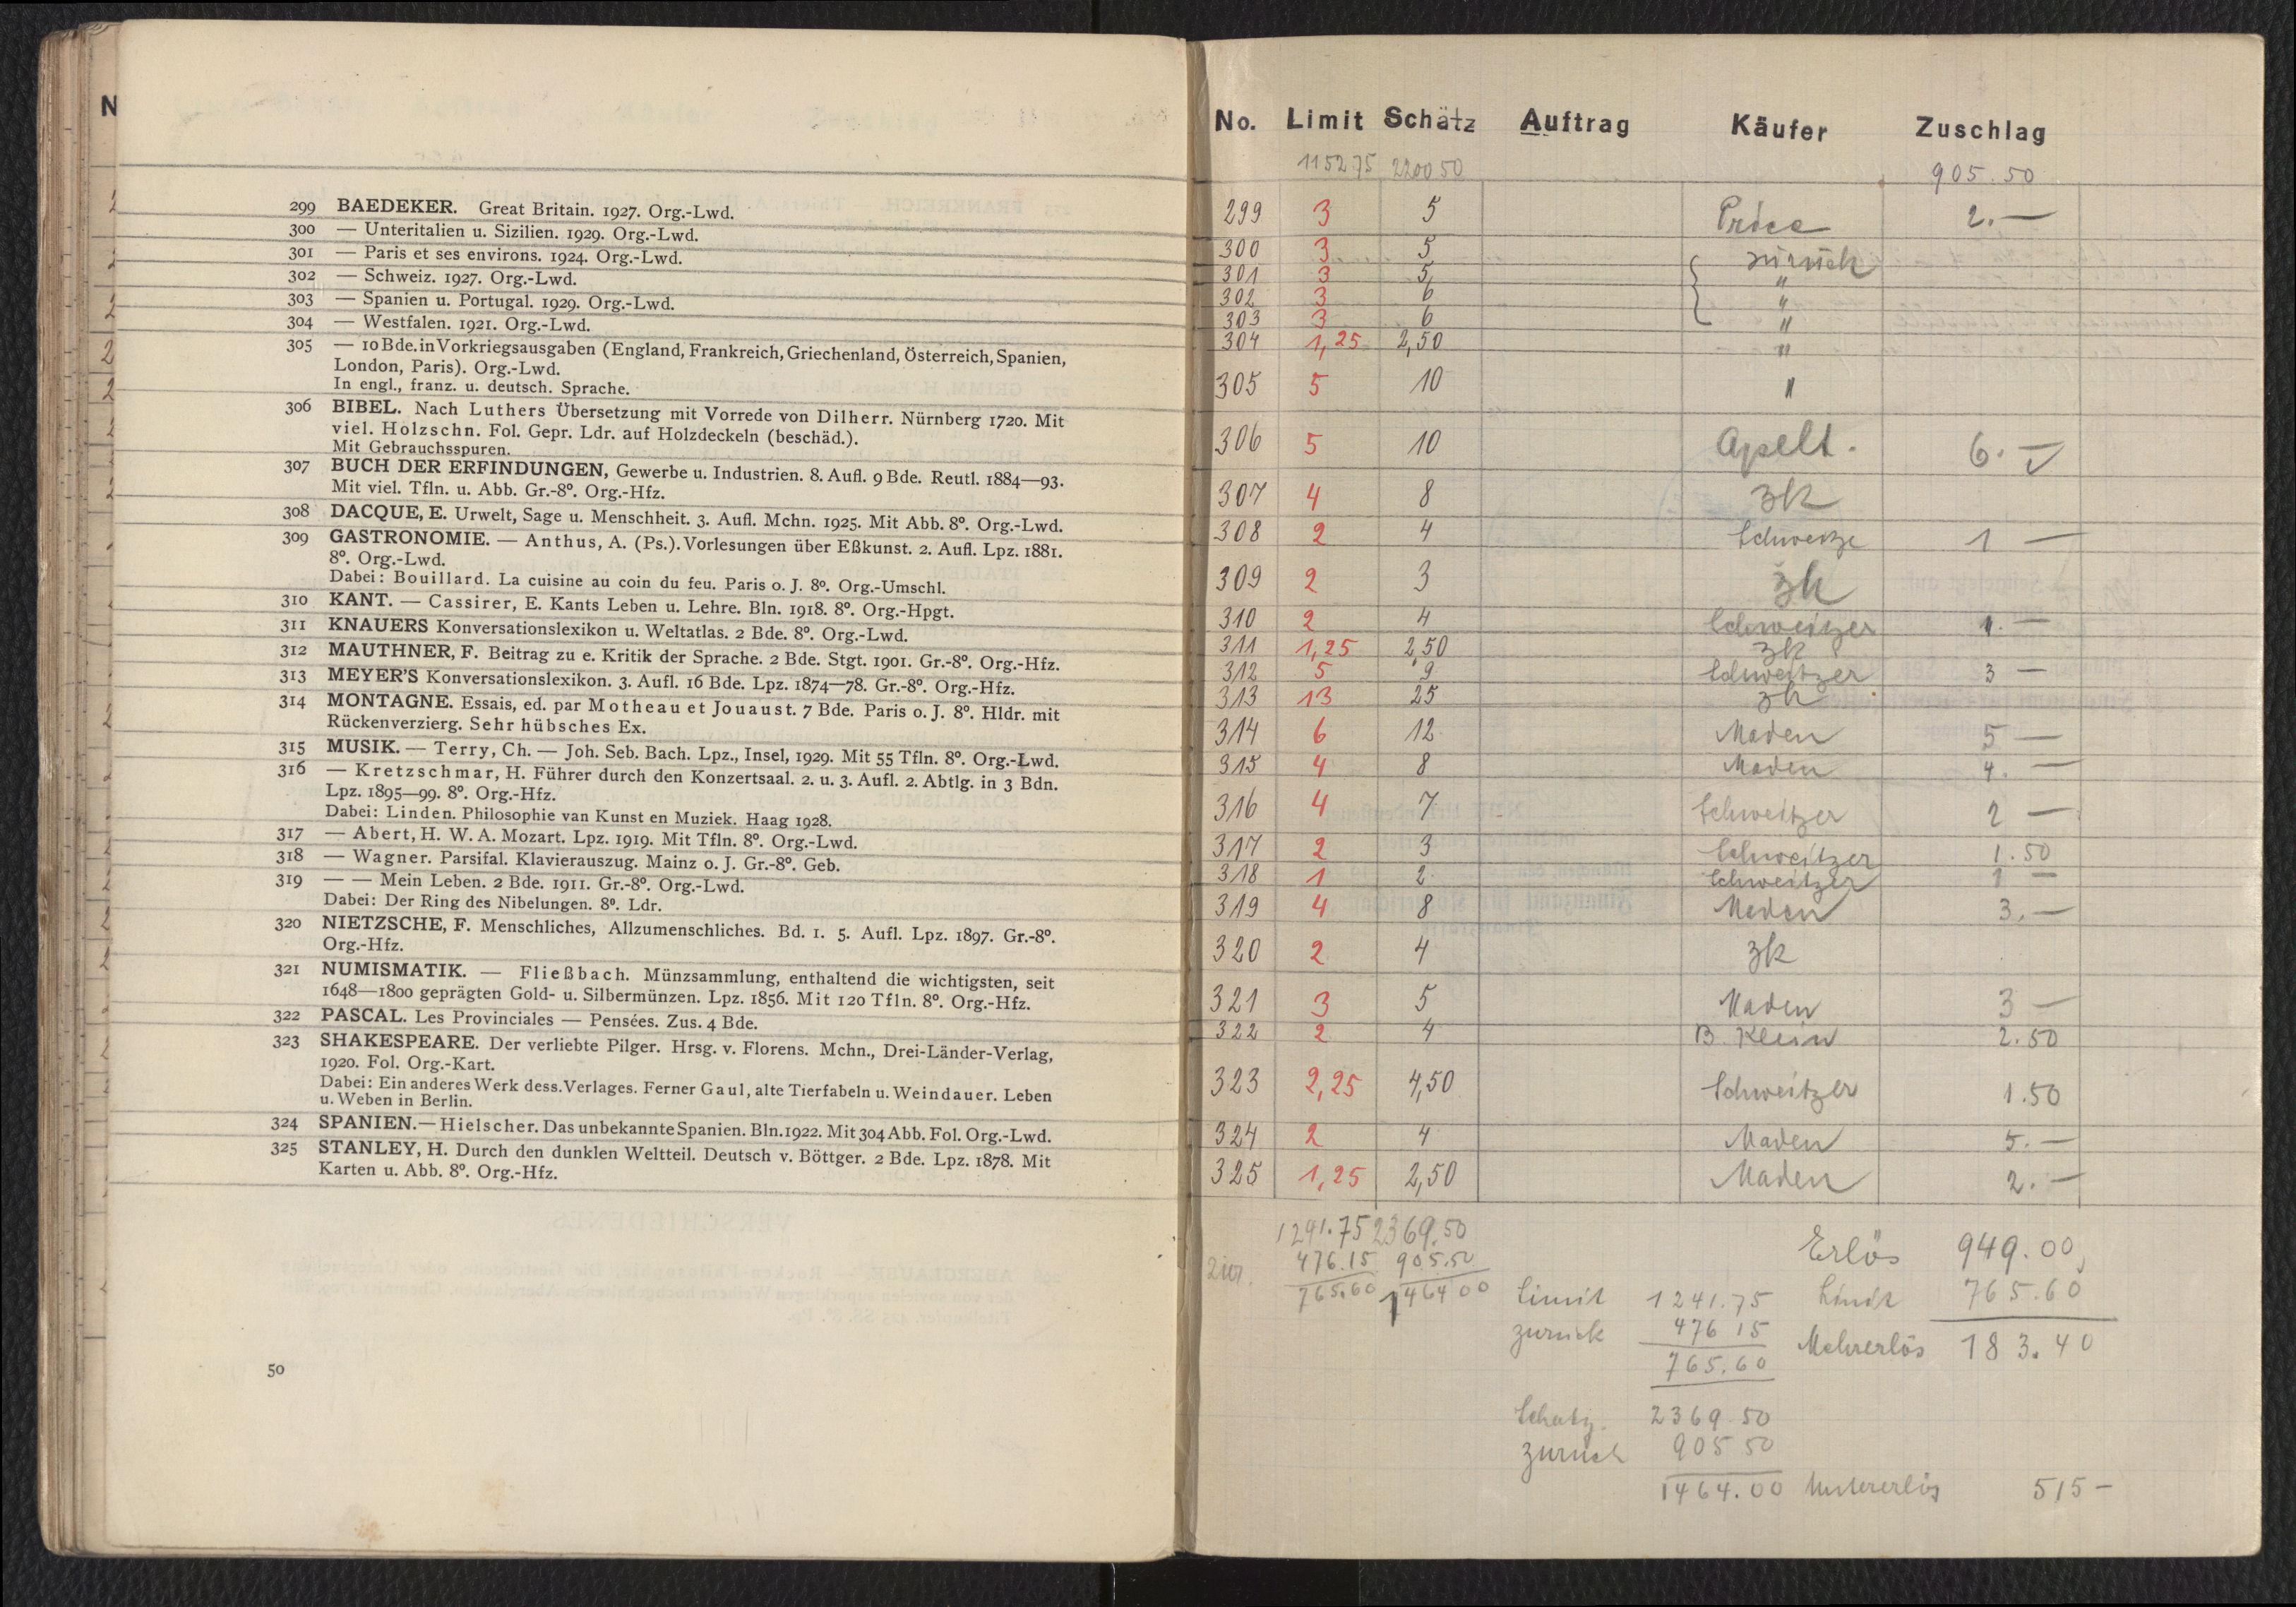 N
299 BAEDEKER. Great Britain. 1927. Org.-Lwd.
300 — Unteritalien u. Sizilien. 1929. Org.-Lwd.
301 — Paris et ses environs. 1924. Org.-Lwd.
302 — Schweiz. 1927. Org.-Lwd.
303 — Spanien u. Portugal. 1929. Org.-Lwd.
304 — Westfalen. 1921. Org.-Lwd.
305 — 10 Bde. in Vorkriegsausgaben (England, Frankreich, Griechenland, Österreich, Spanien,
London, Paris). Org.-Lwd.
In engl., franz. u. deutsch. Sprache.
306 BIBEL. Nach Luthers Übersetzung mit Vorrede von Dilherr. Nürnberg 1720. Mit
viel. Holzschn. Fol. Gepr. Ldr. auf Holzdeckeln (beschäd.).
Mit Gebrauchsspuren.
307 BUCH DER ERFINDUNGEN, Gewerbe u. Industrien. 8. Aufl. 9 Bde. Reutl. 1884—93.
Mit viel. Tfln. u. Abb. Gr.-8º. Org.-Hfz.
308 DACQUE, E. Urwelt, Sage u. Menschheit. 3. Aufl. Mchn. 1925. Mit Abb. 8º. Org.-Lwd.
309 GASTRONOMIE. — Anthus, A. (Ps.). Vorlesungen über Eßkunst. 2. Aufl. Lpz. 1881.
8º. Org.-Lwd.
Dabei: Bouillard. La cuisine au coin du feu. Paris o. J. 8º. Org.-Umschl.
310 KANT. — Cassirer, E. Kants Leben u. Lehre. Bln. 1918. 8º. Org.-Hpgt.
311 KNAUERS Konversationslexikon u. Weltatlas. 2 Bde. 8º. Org.-Lwd.
312 MAUTHNER, F. Beitrag zu e. Kritik der Sprache. 2 Bde. Stgt. 1901. Gr.-8º. Org.-Hfz.
313 MEYER'S Konversationslexikon. 3. Aufl. 16 Bde. Lpz. 1874—78. Gr.-8º. Org.-Hfz.
314 MONTAGNE. Essais, ed. par Motheau et Jouaust. 7 Bde. Paris o. J. 8º. Hldr. mit
Rückenverzierg. Sehr hübsches Ex.
315 MUSIK. — Terry, Ch. — Joh. Seb. Bach. Lpz., Insel, 1929. Mit 55 Tfln. 8º. Org.-Lwd.
316 — Kretzschmar, H. Führer durch den Konzertsaal. 2. u. 3. Aufl. 2. Abtlg. in 3 Bdn.
Lpz. 1895—99. 8º. Org.-Hfz.
Dabei: Linden. Philosophie van Kunst en Muziek. Haag 1928.
317 — Abert, H. W. A. Mozart. Lpz. 1919. Mit Tfln. 8º. Org.-Lwd.
318 — Wagner. Parsifal. Klavierauszug. Mainz o. J. Gr.-8º. Geb.
319 — — Mein Leben. 2 Bde. 1911. Gr.-8º. Org.-Lwd.
Dabei: Der Ring des Nibelungen. 8º. Ldr.
320 NIETZSCHE, F. Menschliches, Allzumenschliches. Bd. 1. 5. Aufl. Lpz. 1897. Gr.-8º.
Org.-Hfz.
321 NUMISMATIK. — Fließbach. Münzsammlung, enthaltend die wichtigsten, seit
1648—1800 geprägten Gold- u. Silbermünzen. Lpz. 1856. Mit 120 Tfln. 8º. Org.-Hfz.
322 PASCAL. Les Provinciales — Pensées. Zus. 4 Bde.
323 SHAKESPEARE. Der verliebte Pilger. Hrsg. v. Florens. Mchn., Drei-Länder-Verlag,
1920. Fol. Org.-Kart.
Dabei: Ein anderes Werk dess. Verlages. Ferner Gaul, alte Tierfabeln u. Weindauer. Leben
u. Weben in Berlin.
324 SPANIEN. — Hielscher. Das unbekannte Spanien. Bln. 1922. Mit 304 Abb. Fol. Org.-Lwd.
325 STANLEY, H. Durch den dunklen Weltteil. Deutsch v. Böttger. 2 Bde. Lpz. 1878. Mit
Karten u. Abb. 8º. Org.-Hfz.
50
No. Limit Schätz Auftrag Käufer Zuschlag
1152 75 2200 50 905.50
299 3 5 Price 2.—
300 3 5 zurück
301 3 5 "
302 3 6 "
303 3 6 "
304 1,25 2,50 "
305 5 10 "
306 5 10 Apelt. 6.—
307 4 8 zk
308 2 4 1 —
309 2 3 zk
310 2 4 Schweitzer 1.—
311 1,25 2,50 zk
312 5 9 Schweitzer 3 —
313 13 25 zk
314 6 12 Maden 5 —
315 4 8 Maden 4.—
316 4 7 Schweitzer 2 —
317 2 3 Schweitzer 1.50
318 1 2 Schweitzer 1 —
319 4 8 Maden 3.—
320 2 4 zk
321 3 5 Maden 3 —
322 2 4 B. Klein 2.50
323 2,25 4,50 Schweitzer 1.50
324 2 4 Maden 5.—
325 1,25 2,50 Maden 2.—
1241.75 2369.50
476.15 905.50
765.60 1464 00
Erlös 949.00
Limit 765.60
Mehrerlös 183.40
Limit 1241.75
zurück 476 15
765.60
Schatz. 2369.50
zurück 905 50
1464.00 Untererlös 515 —